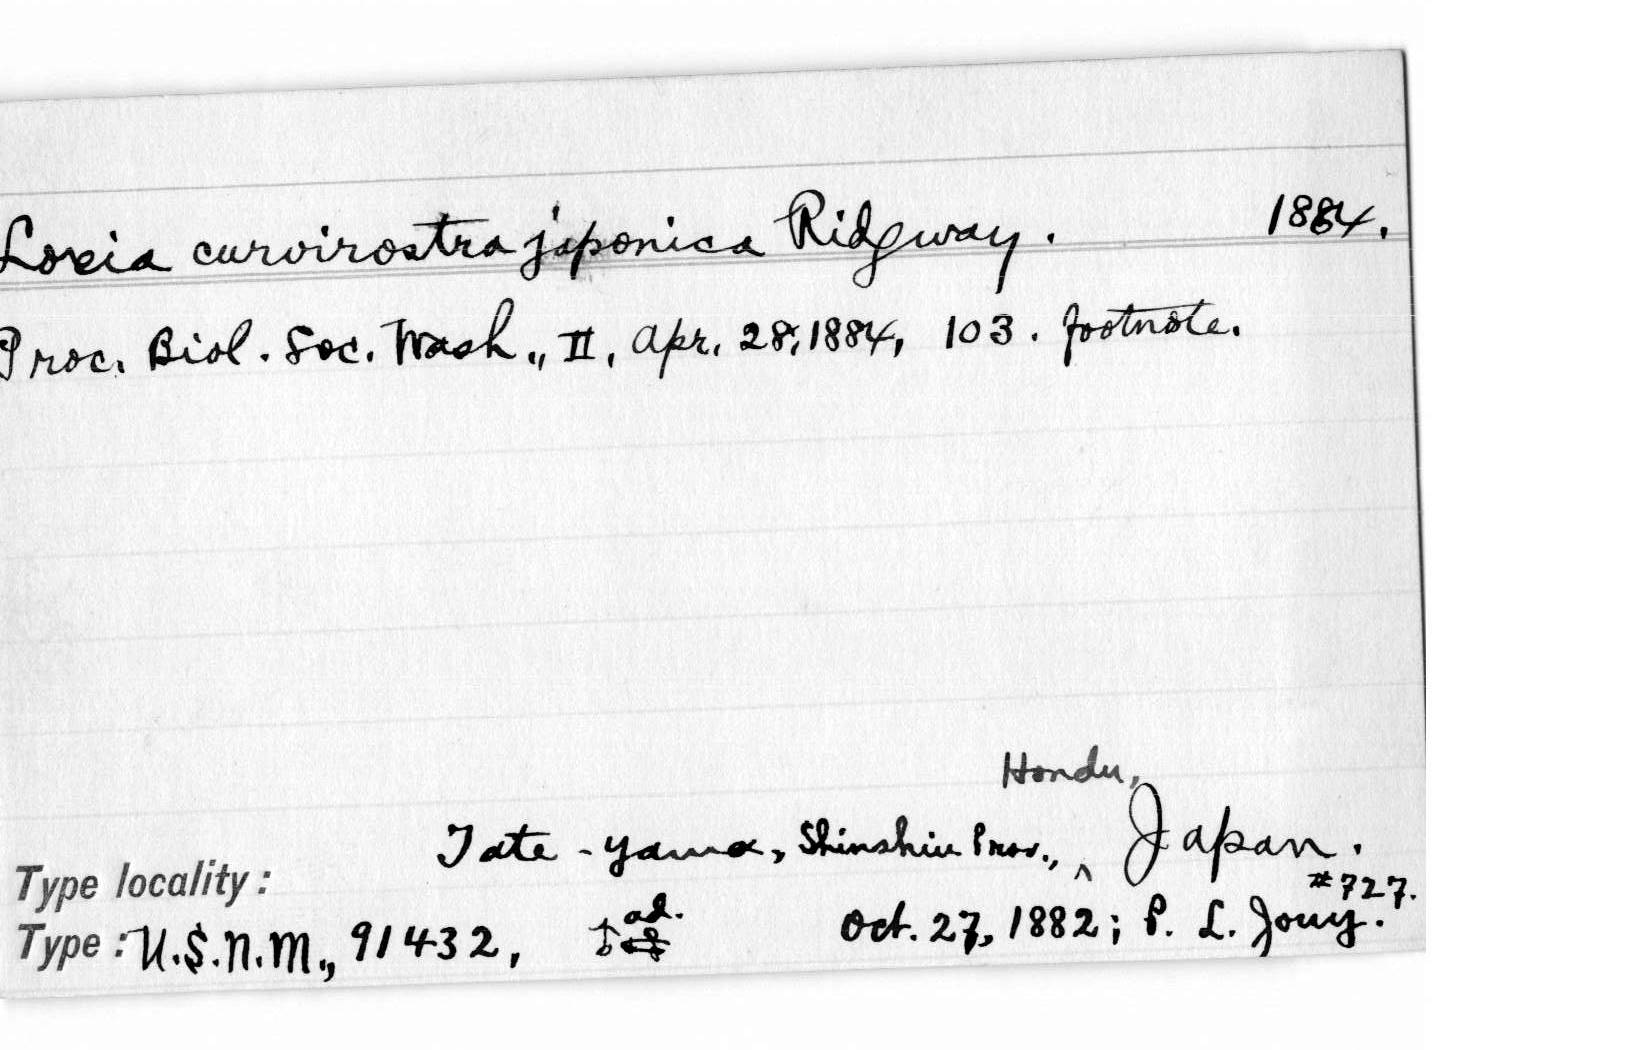 Loxia curvirostra japonica Ridgway. 1884.
Proc. Biol. Soc. Wash., II, Apr. 28, 1884, 103. footnote.
Hondu,
Type locality: Tate-yama, Shinshiu Prov., ^ Japan.
#727.
Type: U.S.N.M., 91432, ♂ ad. Oct. 27, 1882; P. L. Jouy.